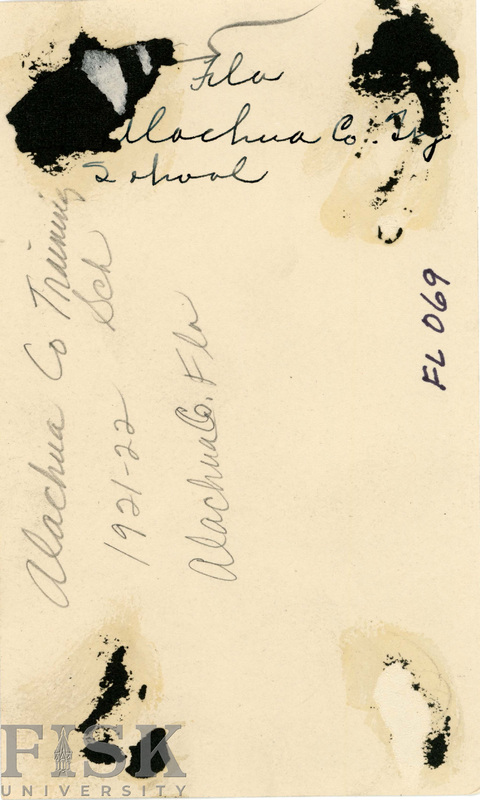 Fla
Alachua Co. Trg
School
Alachua Co Training
Sch
1921-22
Alachua Co. Fla
FL 069
FISK
UNIVERSITY